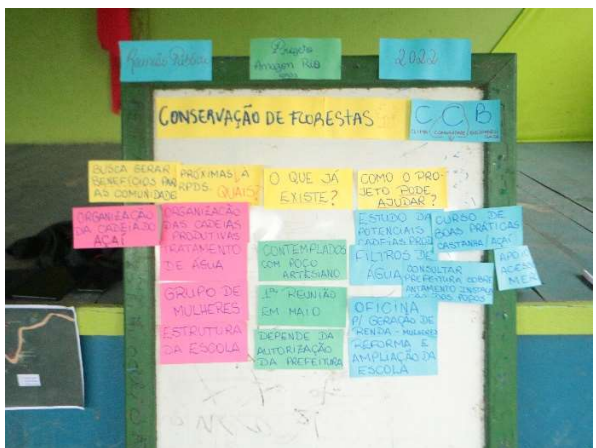 Reunião Pública
Projeto
Amazon Rio
2022
CONSERVAÇÃO DE FLORESTAS
C C B
CLIMA COMUNIDADE
BUSCA GERAR
BENEFÍCIOS PARA
AS COMUNIDADE
PRÓXIMAS A
RPDS.
QUAIS?
O QUE JÁ
EXISTE?
COMO O PRO-
JETO PODE
AJUDAR?
ORGANIZAÇÃO
DA CADEIA DO
AÇAÍ
ORGANIZAÇÃO
DAS CADEIAS
PRODUTIVAS
TRATAMENTO
DE ÁGUA
GRUPO DE
MULHERES
ESTRUTURA
DA ESCOLA
CONTEMPLADOS
COM POÇO
ARTESIANO
1ª REUNIÃO
EM MAIO
DEPENDE DA
AUTORIZAÇÃO
DA PREFEITURA
ESTUDO DA
POTENCIAIS
CADEIAS PROD
FILTROS DE
ÁGUA
CURSO DE
BOAS PRÁTICAS
CASTANHA/AÇAÍ
CONSULTAR
PREFEITURA SOBRE
DOS POÇOS
APOIO
ACESSO
MER
OFICINA
P/ GERAÇÃO DE
RENDA - MULHERES
REFORMA E
AMPLIAÇÃO DA
ESCOLA